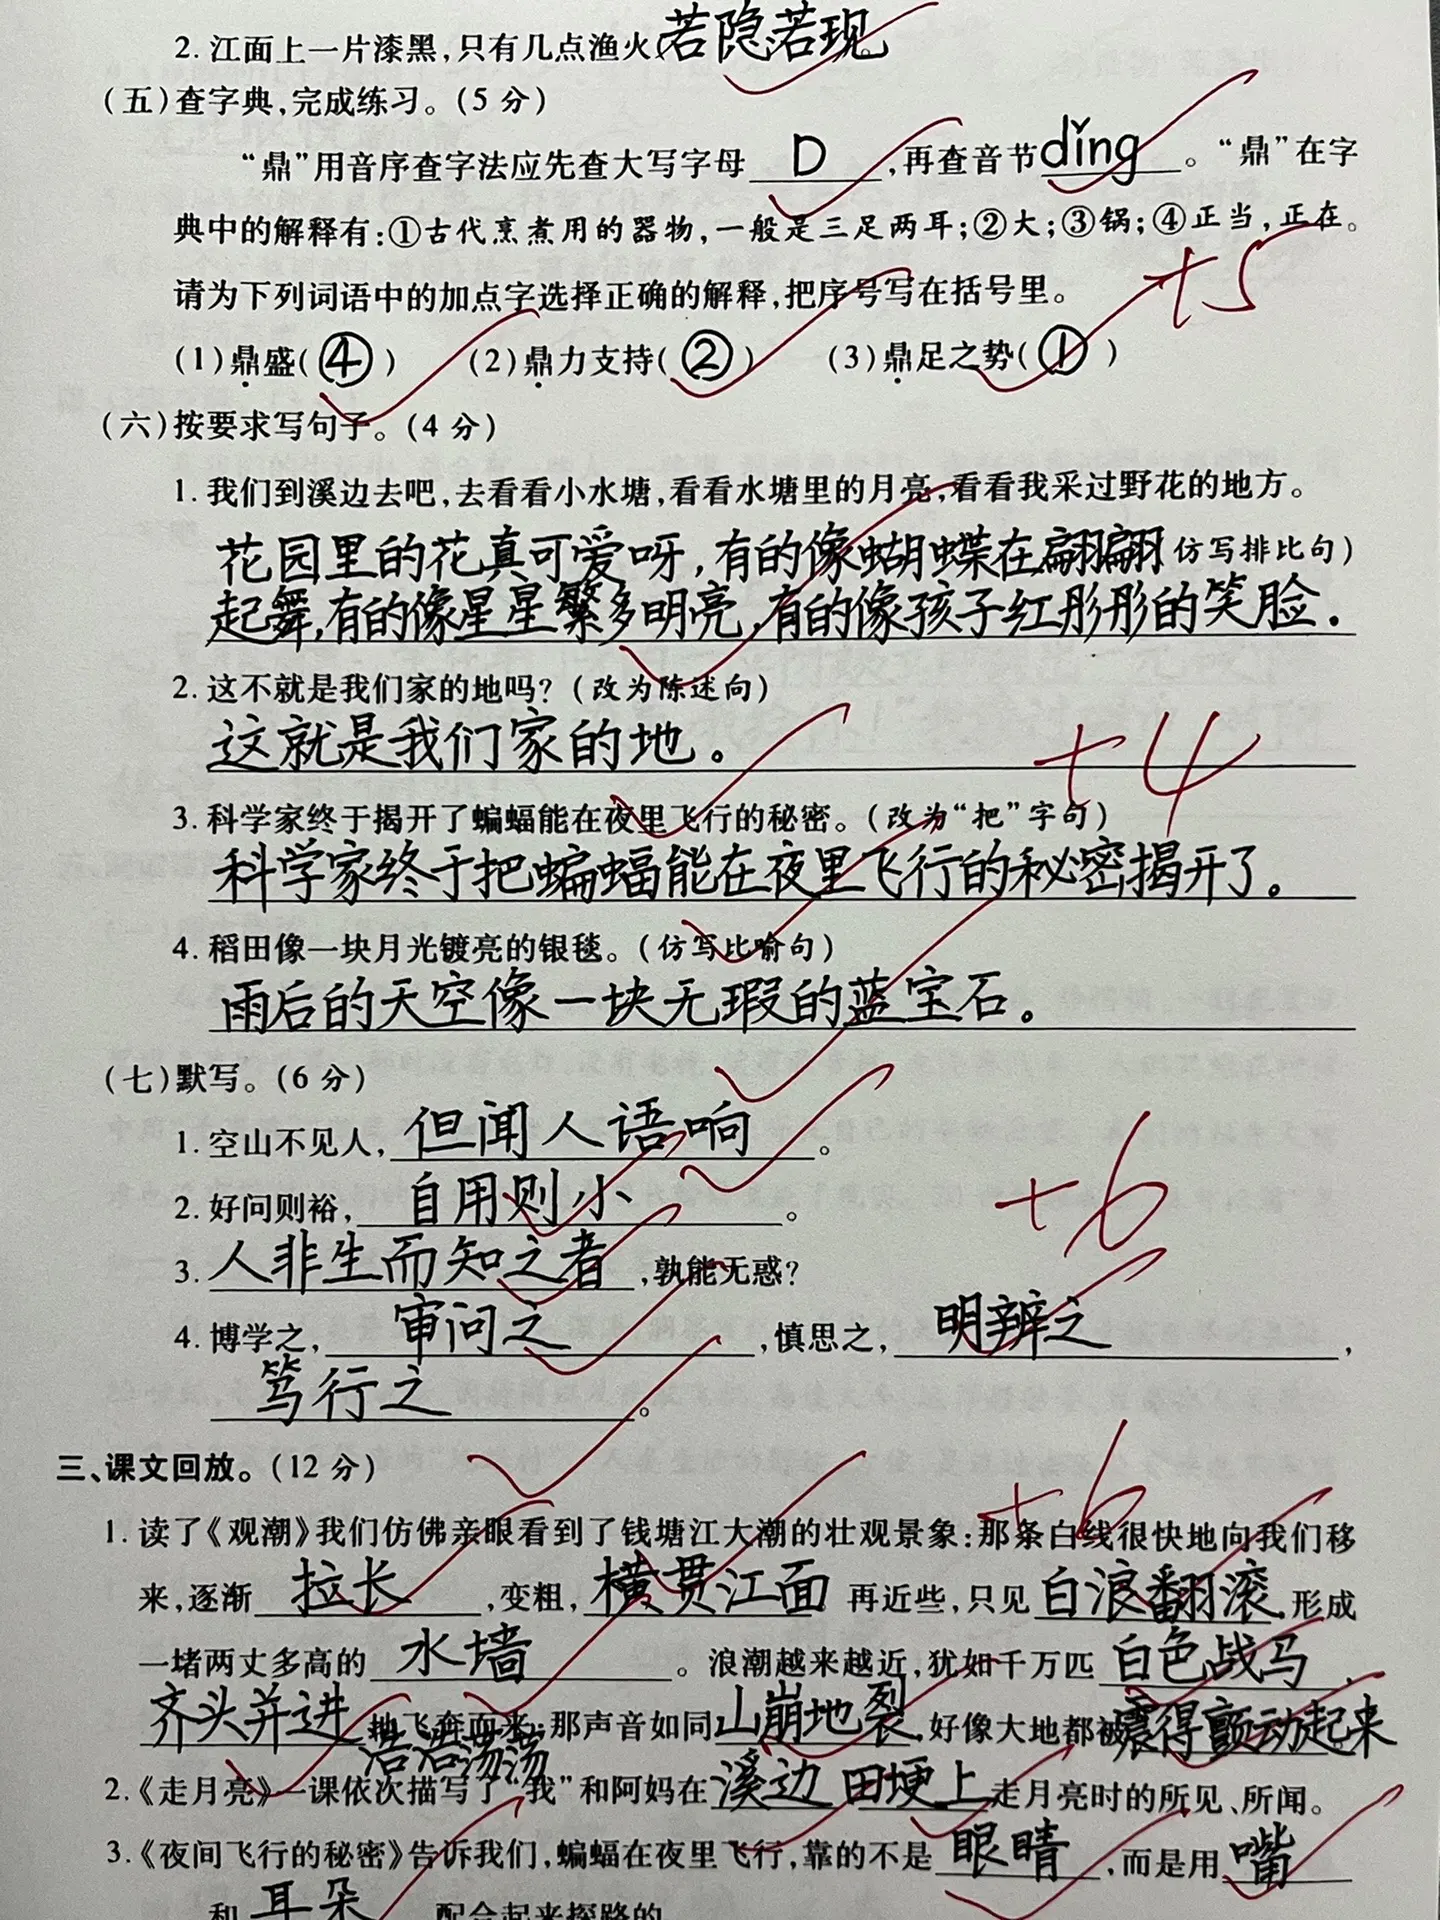 2. 江面上一片漆黑,只有几点渔火 若隐若现。
(五)查字典,完成练习。(5 分)
“鼎”用音序查字法应先查大写字母 D ,再查音节 dǐng 。“鼎”在字
典中的解释有:①古代烹煮用的器物,一般是三足两耳;②大;③锅;④正当,正在。
请为下列词语中的加点字选择正确的解释,把序号写在括号里。
+5
(1)鼎盛( ④ ) (2)鼎力支持( ② ) (3)鼎足之势( ① )
(六)按要求写句子。(4 分)
1. 我们到溪边去吧,去看看小水塘,看看水塘里的月亮,看看我采过野花的地方。
花园里的花真可爱呀,有的像蝴蝶在翩翩 (仿写排比句)
起舞,有的像星星繁多明亮,有的像孩子红彤彤的笑脸.
2. 这不就是我们家的地吗?(改为陈述向)
这就是我们家的地。
+4
3. 科学家终于揭开了蝙蝠能在夜里飞行的秘密。(改为“把”字句)
科学家终于把蝙蝠能在夜里飞行的秘密揭开了。
4. 稻田像一块月光镀亮的银毯。(仿写比喻句)
雨后的天空像一块无瑕的蓝宝石。
(七)默写。(6 分)
1. 空山不见人, 但闻人语响 。
2. 好问则裕, 自用则小 。
+6
3. 人非生而知之者 ,孰能无惑?
4. 博学之, 审问之 ,慎思之, 明辨之 ,
笃行之 。
三、课文回放。(12 分)
+6
1. 读了《观潮》我们仿佛亲眼看到了钱塘江大潮的壮观景象:那条白线很快地向我们移
来,逐渐 拉长 ,变粗, 横贯江面 再近些,只见 白浪翻滚 ,形成
一堵两丈多高的 水墙 。浪潮越来越近,犹如千万匹 白色战马 ,
齐头并进 浩浩荡荡 地飞奔而来;那声音如同 山崩地裂 ,好像大地都被 震得颤动起来
2.《走月亮》一课依次描写了“我”和阿妈在 溪边 田埂上 走月亮时的所见、所闻。
3.《夜间飞行的秘密》告诉我们,蝙蝠在夜里飞行,靠的不是 眼睛 ,而是用 嘴
和 耳朵 配合起来探路的